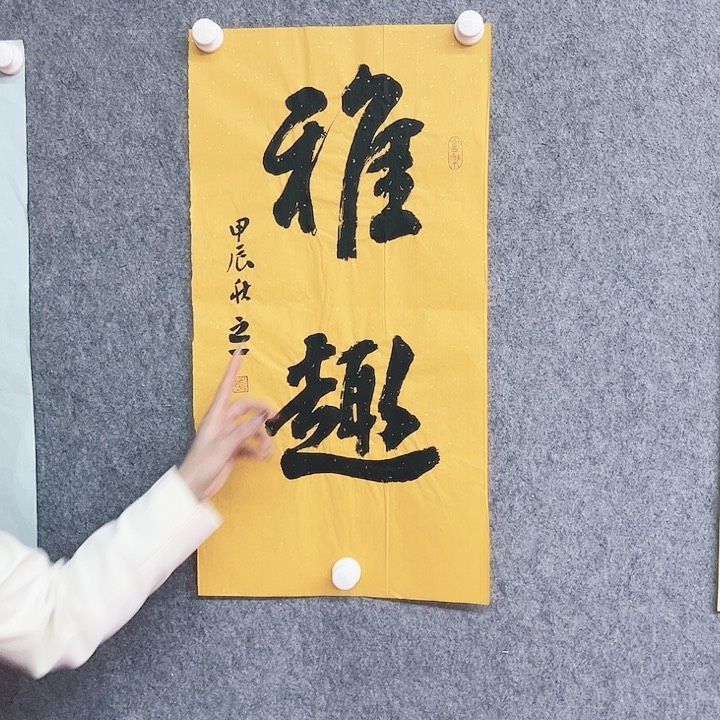 雅趣
甲辰秋之